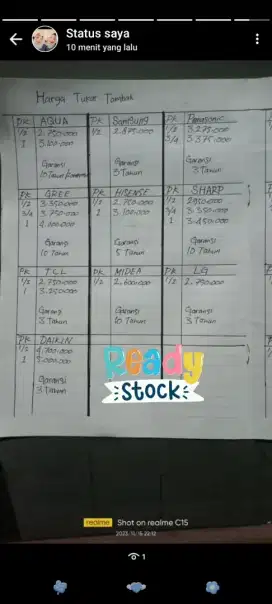 Status saya
10 menit yang lalu
Harga Tukar Tambah
PK AQUA
1/2 2.750.000
1 3.100.000
Garansi
10 Tahun
PK SAMSUNG
1/2 2.875.000
Garansi
3 Tahun
PK Panasonic
1/2 3.275.000
3/4 3.375.000
Garansi
3 Tahun
PK GREE
1/2 3.350.000
3/4 3.750.000
1 4.000.000
Garansi
10 Tahun
PK HISENSE
1/2 2.700.000
1 3.100.000
Garansi
5 Tahun
PK SHARP
1/2 2950.000
3/4 3.350.000
1 3.450.000
Garansi
10 Tahun
PK TCL
1/2 2.750.000
1 3.250.000
Garansi
3 Tahun
PK MIDEA
1/2 2.600.000
Garansi
10 Tahun
PK LG
1/2 2.750.000
Garansi
3 Tahun
PK DAIKIN
1/2 4.700.000
1 5.000.000
Garansi
3 Tahun
Ready
STOCK
realme Shot on realme C15
2023/11/16 22:12
1